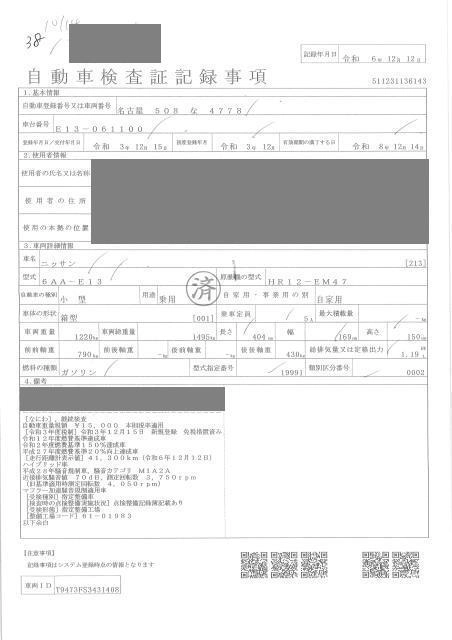 38
記録年月日 令和 6年 12月 12日
自動車検査証記録事項
511231136143
1.基本情報
自動車登録番号又は車両番号 名古屋 508 な 4778
車台番号 E13-061100
登録年月日/交付年月日 令和 3年 12月 15日 初度登録年月 令和 3年 12月 有効期間の満了する日 令和 8年 12月 14日
2.使用者情報
使用者の氏名又は名称
使用者の住所
使用の本拠の位置
3.車両詳細情報
車名 ニッサン [213]
型式 6AA-E13 原動機の型式 HR12-EM47
済
自動車の種別 小型 用途 乗用 自家用・事業用の別 自家用
車体の形状 箱型 [001] 乗車定員 5人 最大積載量 -kg
車両重量 1220kg 車両総重量 1495kg 長さ 404cm 幅 169cm 高さ 150cm
前前軸重 790kg 前後軸重 -kg 後前軸重 -kg 後後軸重 430kg 総排気量又は定格出力 1.19 L
燃料の種類 ガソリン 型式指定番号 19991 類別区分番号 0002
4.備考
[なにわ]、継続検査
自動車重量税額 ¥15,000 本則税率適用
[令和3年度税制]令和3年12月15日 新規登録 免税措置済み
令和12年度燃費基準達成車
令和2年度燃費基準150%達成車
平成27年度燃費基準20%向上達成車
[走行距離計表示値]41,300km(令和6年12月12日)
ハイブリッド車
平成28年騒音規制車、騒音カテゴリ M1A2A
近接排気騒音値 70dB、測定回転数 3,750rpm
[旧基準適用時測定回転数 4,050rpm]
マフラー加速騒音規制適用車
[受検種別]指定整備車
[検査時の点検整備実施状況]点検整備記録簿記載あり
[受検形態]指定整備工場
[整備工場コード]61-01983
以下余白
[注意事項]
記録事項はシステム登録時点の情報となります
車両ID T9473FS3431408